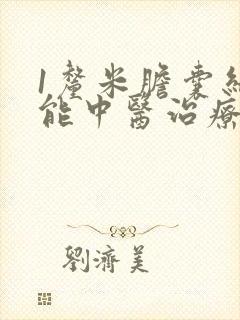 1釐米膽囊結
能中醫治療
劉濟美